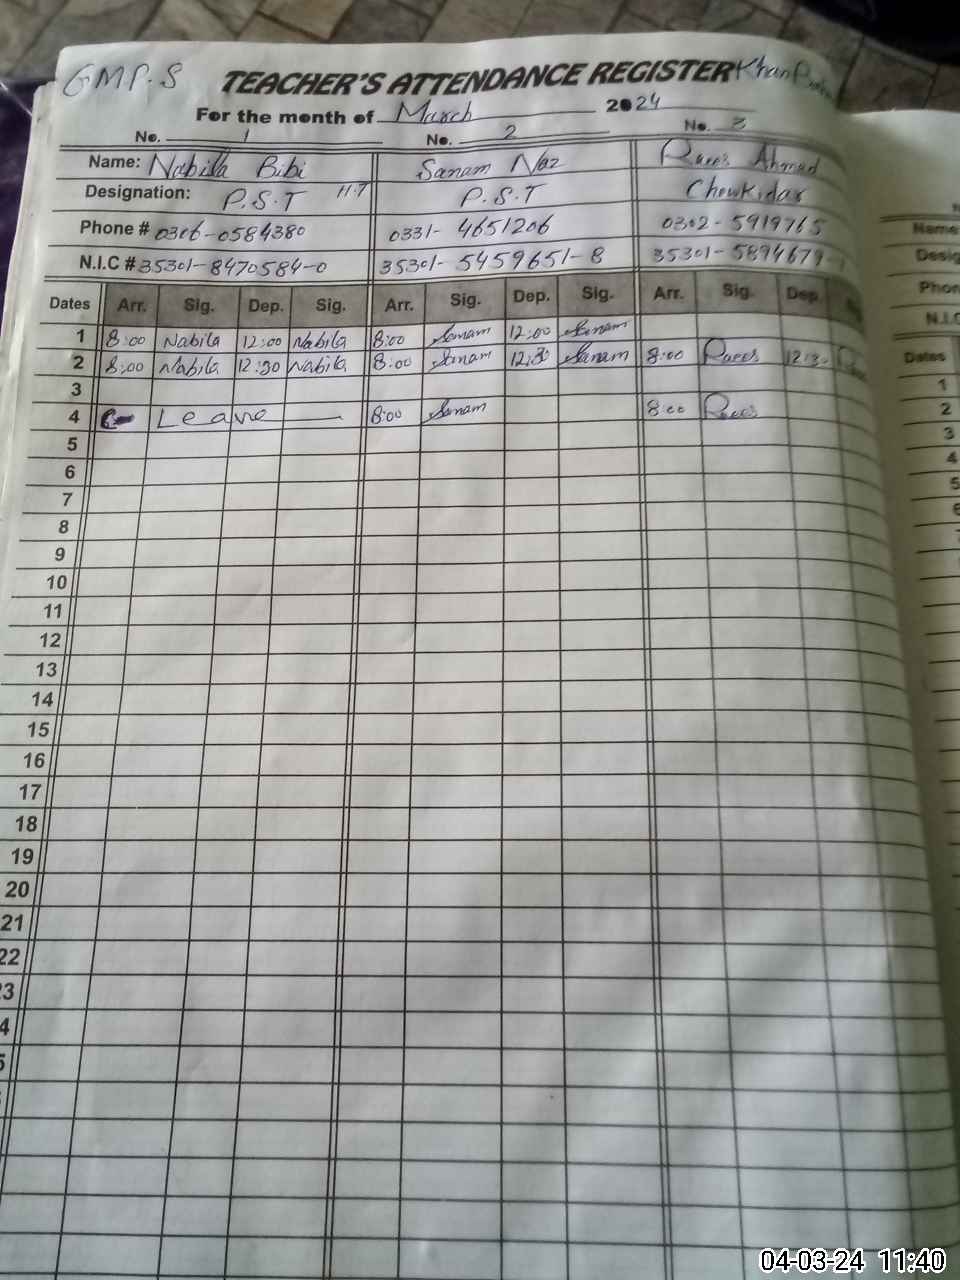 GMP.S TEACHER'S ATTENDANCE REGISTER Khan
For the month of March 2024
No. 1 No. 2 No. 3
Name: Nabila Bibi Sanam Naz Raees Ahmad
Designation: P.S.T H.T P.S.T Chowkidar
Phone # 0306-0584380 0331-4651206 0302-5919765
N.I.C # 35301-8470584-0 35301-5459651-8 35301-5894679-
Dates Arr. Sig. Dep. Sig. Arr. Sig. Dep. Sig. Arr. Sig. Dep.
1 8:00 Nabila 12:00 Nabila 8:00 Sanam 12:00 Sanam
2 8:00 Nabila 12:30 Nabila 8:00 Sanam 12:30 Sanam 8:00 Raees 12:3
3
4 Leave — 8:00 Sanam 8:00 Raees
5
6
7
8
9
10
11
12
13
14
15
16
17
18
19
20
21
22
23
Name
Desig
Phon
N.I.C
Dates
1
2
3
4
5
6
04-03-24 11:40